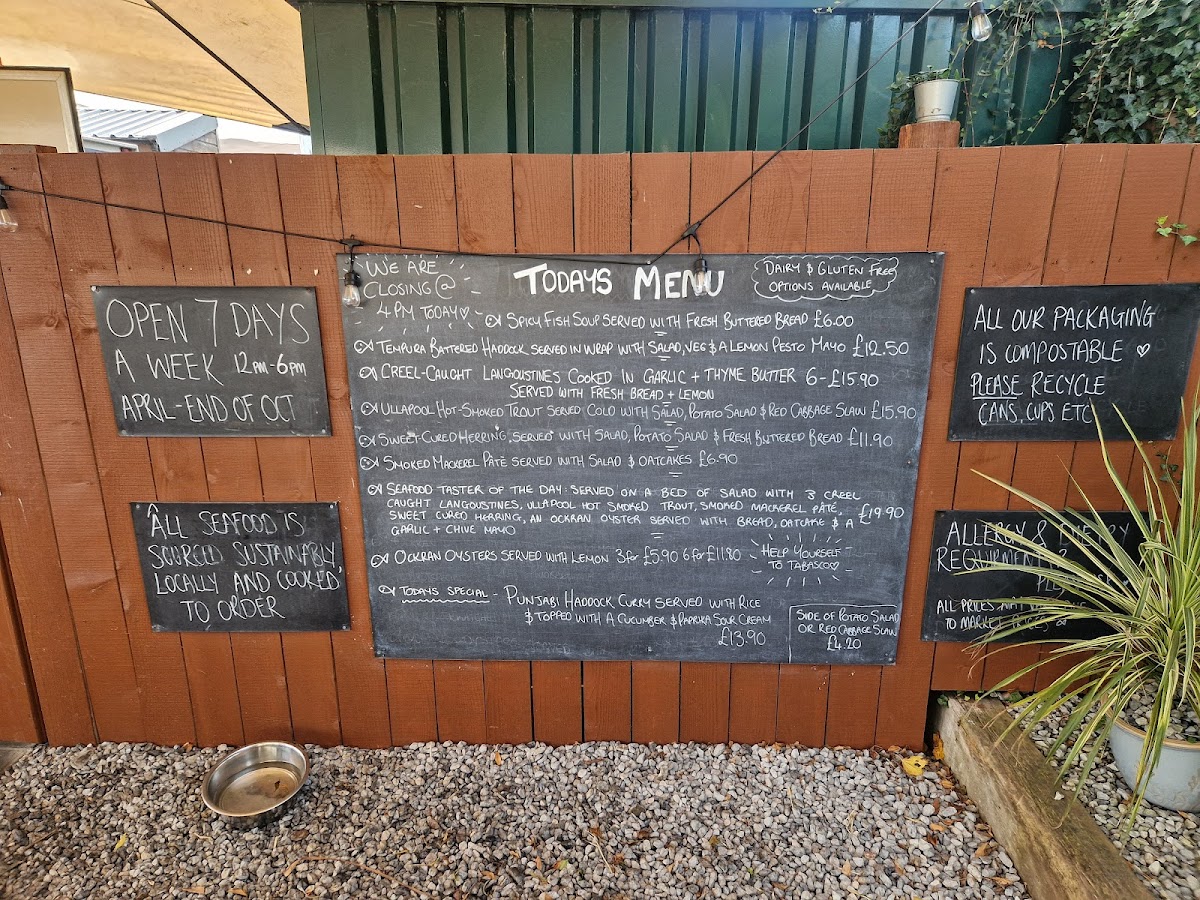 OPEN 7 DAYS
A WEEK 12PM-6PM
APRIL-END OF OCT
ALL SEAFOOD IS
SOURCED SUSTAINABLY,
LOCALLY AND COOKED
TO ORDER
WE ARE
CLOSING @
4PM TODAY
TODAYS MENU
DAIRY & GLUTEN FREE
OPTIONS AVAILABLE
SPICY FISH SOUP SERVED WITH FRESH BUTTERED BREAD £6.00
TEMPURA BATTERED HADDOCK SERVED IN WRAP WITH SALAD, VEG & A LEMON PESTO MAYO £12.50
CREEL-CAUGHT LANGOUSTINES COOKED IN GARLIC + THYME BUTTER 6-£15.90
SERVED WITH FRESH BREAD + LEMON
ULLAPOOL HOT-SMOKED TROUT SERVED COLD WITH SALAD, POTATO SALAD & RED CABBAGE SLAW £15.90
SWEET-CURED HERRING, SERVED WITH SALAD, POTATO SALAD & FRESH BUTTERED BREAD £11.90
SMOKED MACKEREL PÂTÉ SERVED WITH SALAD & OATCAKES £6.90
SEAFOOD TASTER OF THE DAY: SERVED ON A BED OF SALAD WITH 3 CREEL
CAUGHT LANGOUSTINES, ULLAPOOL HOT SMOKED TROUT, SMOKED MACKEREL PÂTÉ,
SWEET CURED HERRING, AN OCKRAN OYSTER SERVED WITH BREAD, OATCAKE & A £19.90
GARLIC + CHIVE MAYO
OCKRAN OYSTERS SERVED WITH LEMON 3 for £5.90 6 for £11.80
HELP YOURSELF
TO TABASCO
TODAYS SPECIAL - PUNJABI HADDOCK CURRY SERVED WITH RICE
& TOPPED WITH A CUCUMBER & PAPRIKA SOUR CREAM
£13.90
SIDE OF POTATO SALAD
OR RED CABBAGE SLAW
£4.20
ALL OUR PACKAGING
IS COMPOSTABLE
PLEASE RECYCLE
CANS, CUPS ETC
ALLERGY &
REQUIRMENTS?
ALL PRICES
TO MARKET